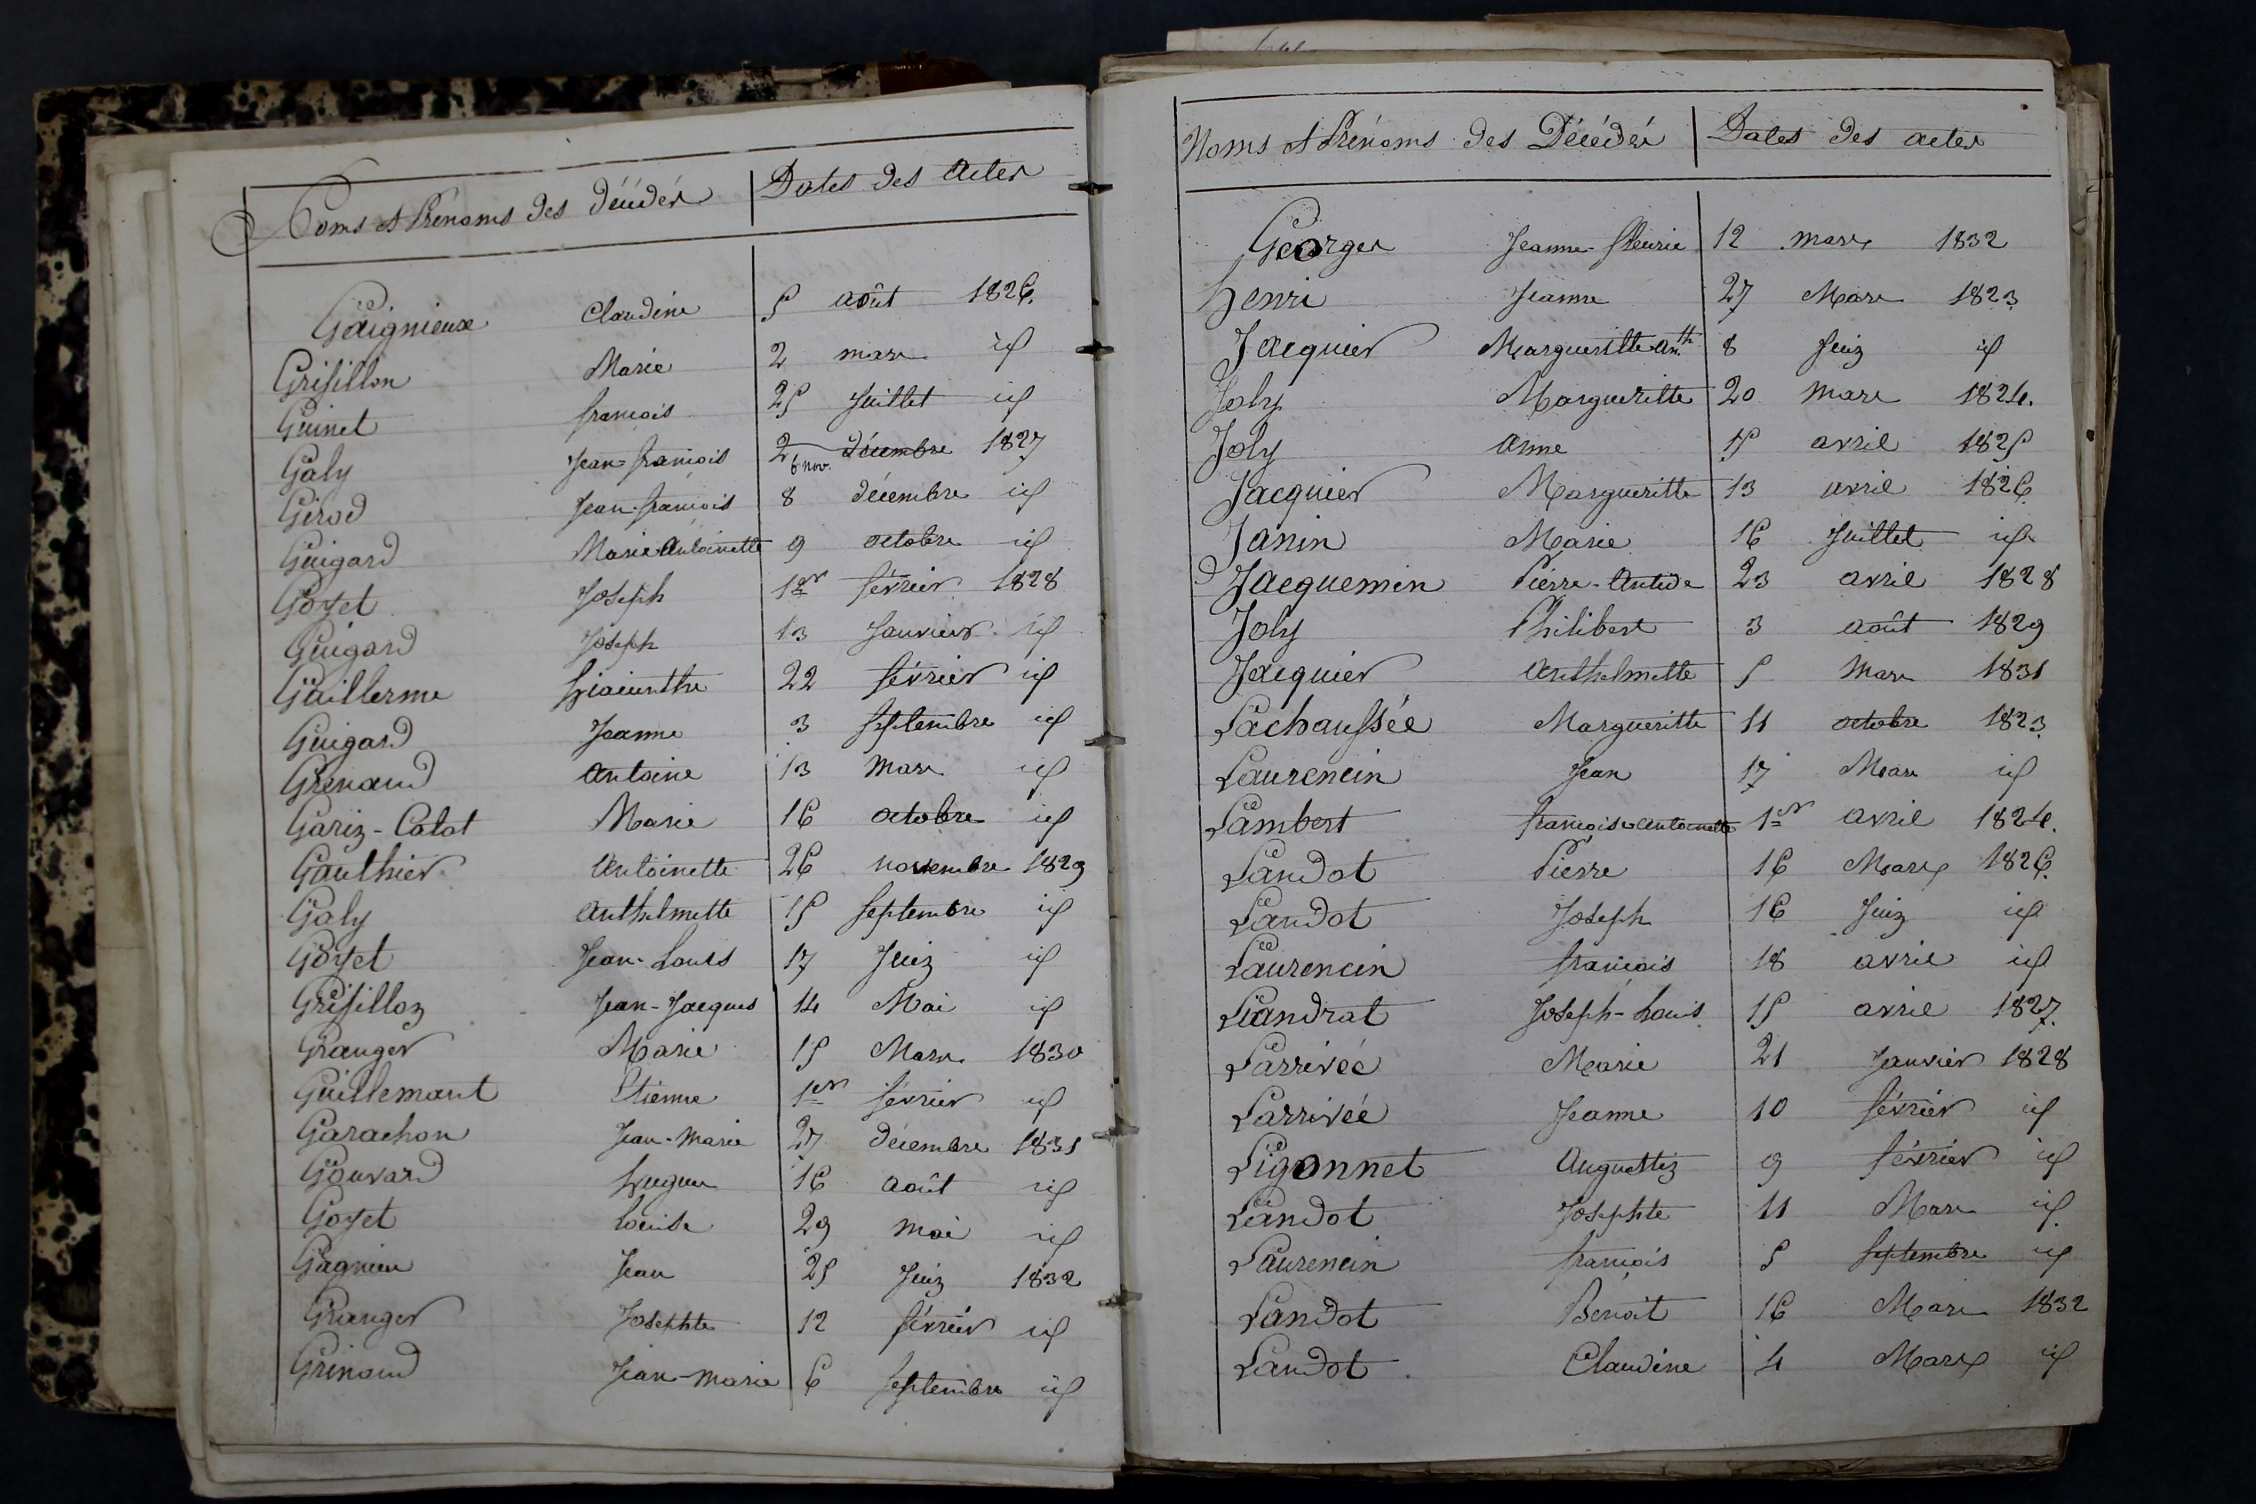 Noms et Prénoms des Décédés Dates des Actes
Gaignieux Claudine 5 août 1826.
Grisillon Marie 2 mars id
Guinet francois 25 Juillet id
Galy Jean-françois 2 décembre 1827
6 nov.
Girod Jean-françois 8 décembre id
Guigard Marie Antoinette 9 octobre id
Goyet Joseph 1er février 1828
Guigard Joseph 13 Janvier id
Guillerme hiacinthe 22 février id
Guigard Jeanne 3 Septembre id
Grenaud Antoine 13 Mars id
Gariz-Calot Marie 16 octobre id
Gauthier Antoinette 26 novembre 1829
Galy Anthelmette 15 Septembre id
Goyet Jean-Louis 17 Juin id
Grisilloz Jean-Jacques 14 Mai id
Granger Marie 15 Mars 1830
Guillemant Etienne 1er février id
Garachon Jean-Marie 27 décembre 1831
Gouvard hugues 16 août id
Goyet Louise 29 Mai id
Gagnieu Jean 25 Juin 1832
Granger Josephte 12 février id
Grinand Jean-Marie 6 Septembre id
Noms et Prénoms des Décédés Dates des actes
Georges Jeanne-fleurie 12 mars 1832
henri Jeanne 27 Mars 1823
Jacquier Margueritte anth 8 Juin id
Joly Margueritte 20 Mars 1824.
Joly anne 15 avril 1825
Jacquier Margueritte 13 avril 1826
Janin Marie 16 Juillet id
Jacquemin Pierre-Antide 23 avril 1828
Joly Philibert 3 août 1829
Jacquier Anthelmette 5 Mars 1831
Lachaussée Margueritte 11 octobre 1823
Laurencin Jean 17 Mars id
Lambert françoise antoinette 1er avril 1824.
Landot Pierre 16 Mars 1826.
Landot Joseph 16 Juin id
Laurencin françois 18 avril id
Liandrat Joseph-Louis 15 avril 1827.
Larrivée Marie 21 Janvier 1828
Larrivée Jeanne 10 février id
Ligonnet Augustin 9 février id
Landot Josephte 11 Mars id
Laurencin françois 5 Septembre id
Landot Benoit 16 Mars 1832
Landot Claudine 4 Mars id